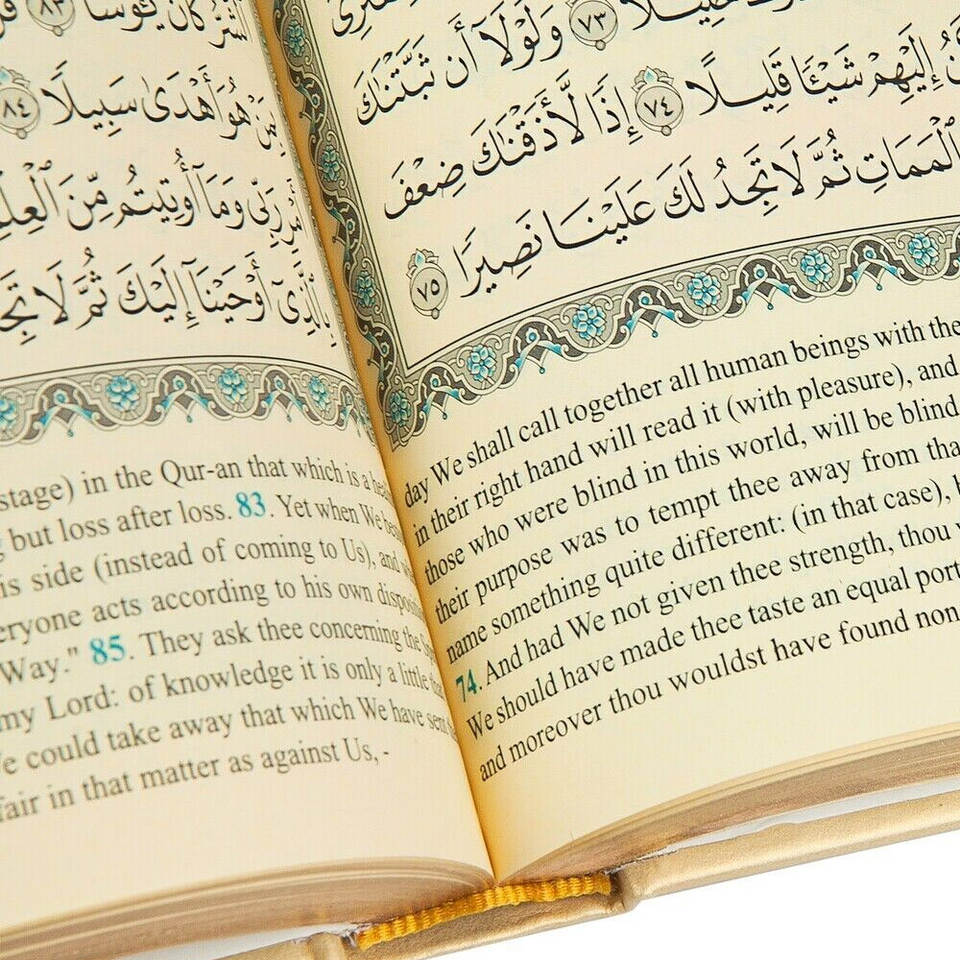 ٱلشَّرُّ كَانَ يَـُٔوسًا ٨٣ قُلْ
مِنْ هُوَ أَهْدَىٰ سَبِيلًا ٨٤
أَمْرِ رَبِّى وَمَآ أُوتِيتُم مِّنَ ٱلْعِلْ
بِٱلَّذِىٓ أَوْحَيْنَآ إِلَيْكَ ثُمَّ لَا تَجِ
stage) in the Qur-an that which is a hea
but loss after loss. 83. Yet when We bes
is side (instead of coming to Us), and w
eryone acts according to his own disposi
Way." 85. They ask thee concerning the
my Lord: of knowledge it is only a little tha
e could take away that which We have sent
fair in that matter as against Us, -
٧٣ وَلَوْلَآ أَن ثَبَّتْنَٰكَ
إِلَيْهِمْ شَيْـًٔا قَلِيلًا ٧٤ إِذًا لَّأَذَقْنَٰكَ ضِعْفَ
ٱلْمَمَاتِ ثُمَّ لَا تَجِدُ لَكَ عَلَيْنَا نَصِيرًا ٧٥
day We shall call together all human beings with the
in their right hand will read it (with pleasure), and
those who were blind in this world, will be blind
their purpose was to tempt thee away from tha
name something quite different: (in that case),
74. And had We not given thee strength, thou
We should have made thee taste an equal port
and moreover thou wouldst have found non